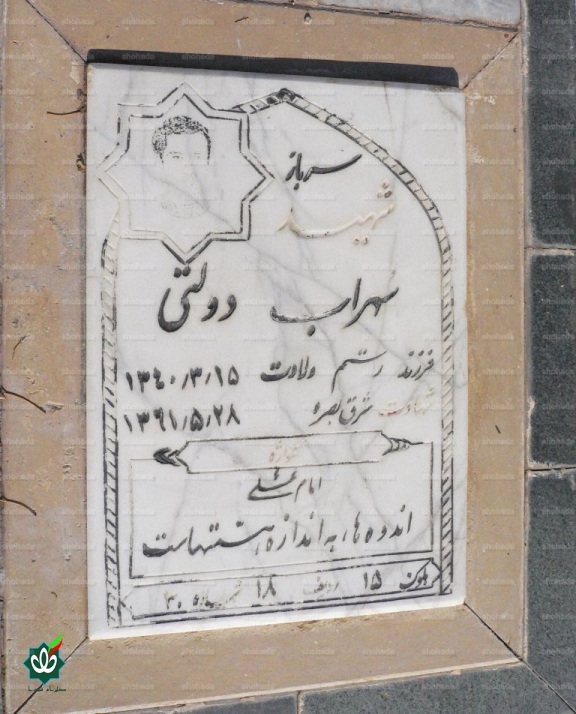 سرباز
شهید
سهراب دولتی
فرزند رستم ولادت ۱۳۴۰/۳/۱۵
شهادت شرق بصره ۱۳۶۱/۵/۲۸
امام علی
اندوه ها، به اندازه همتهاست
بلوک ۱۵ ردیف ۱۸ شماره ۳۰